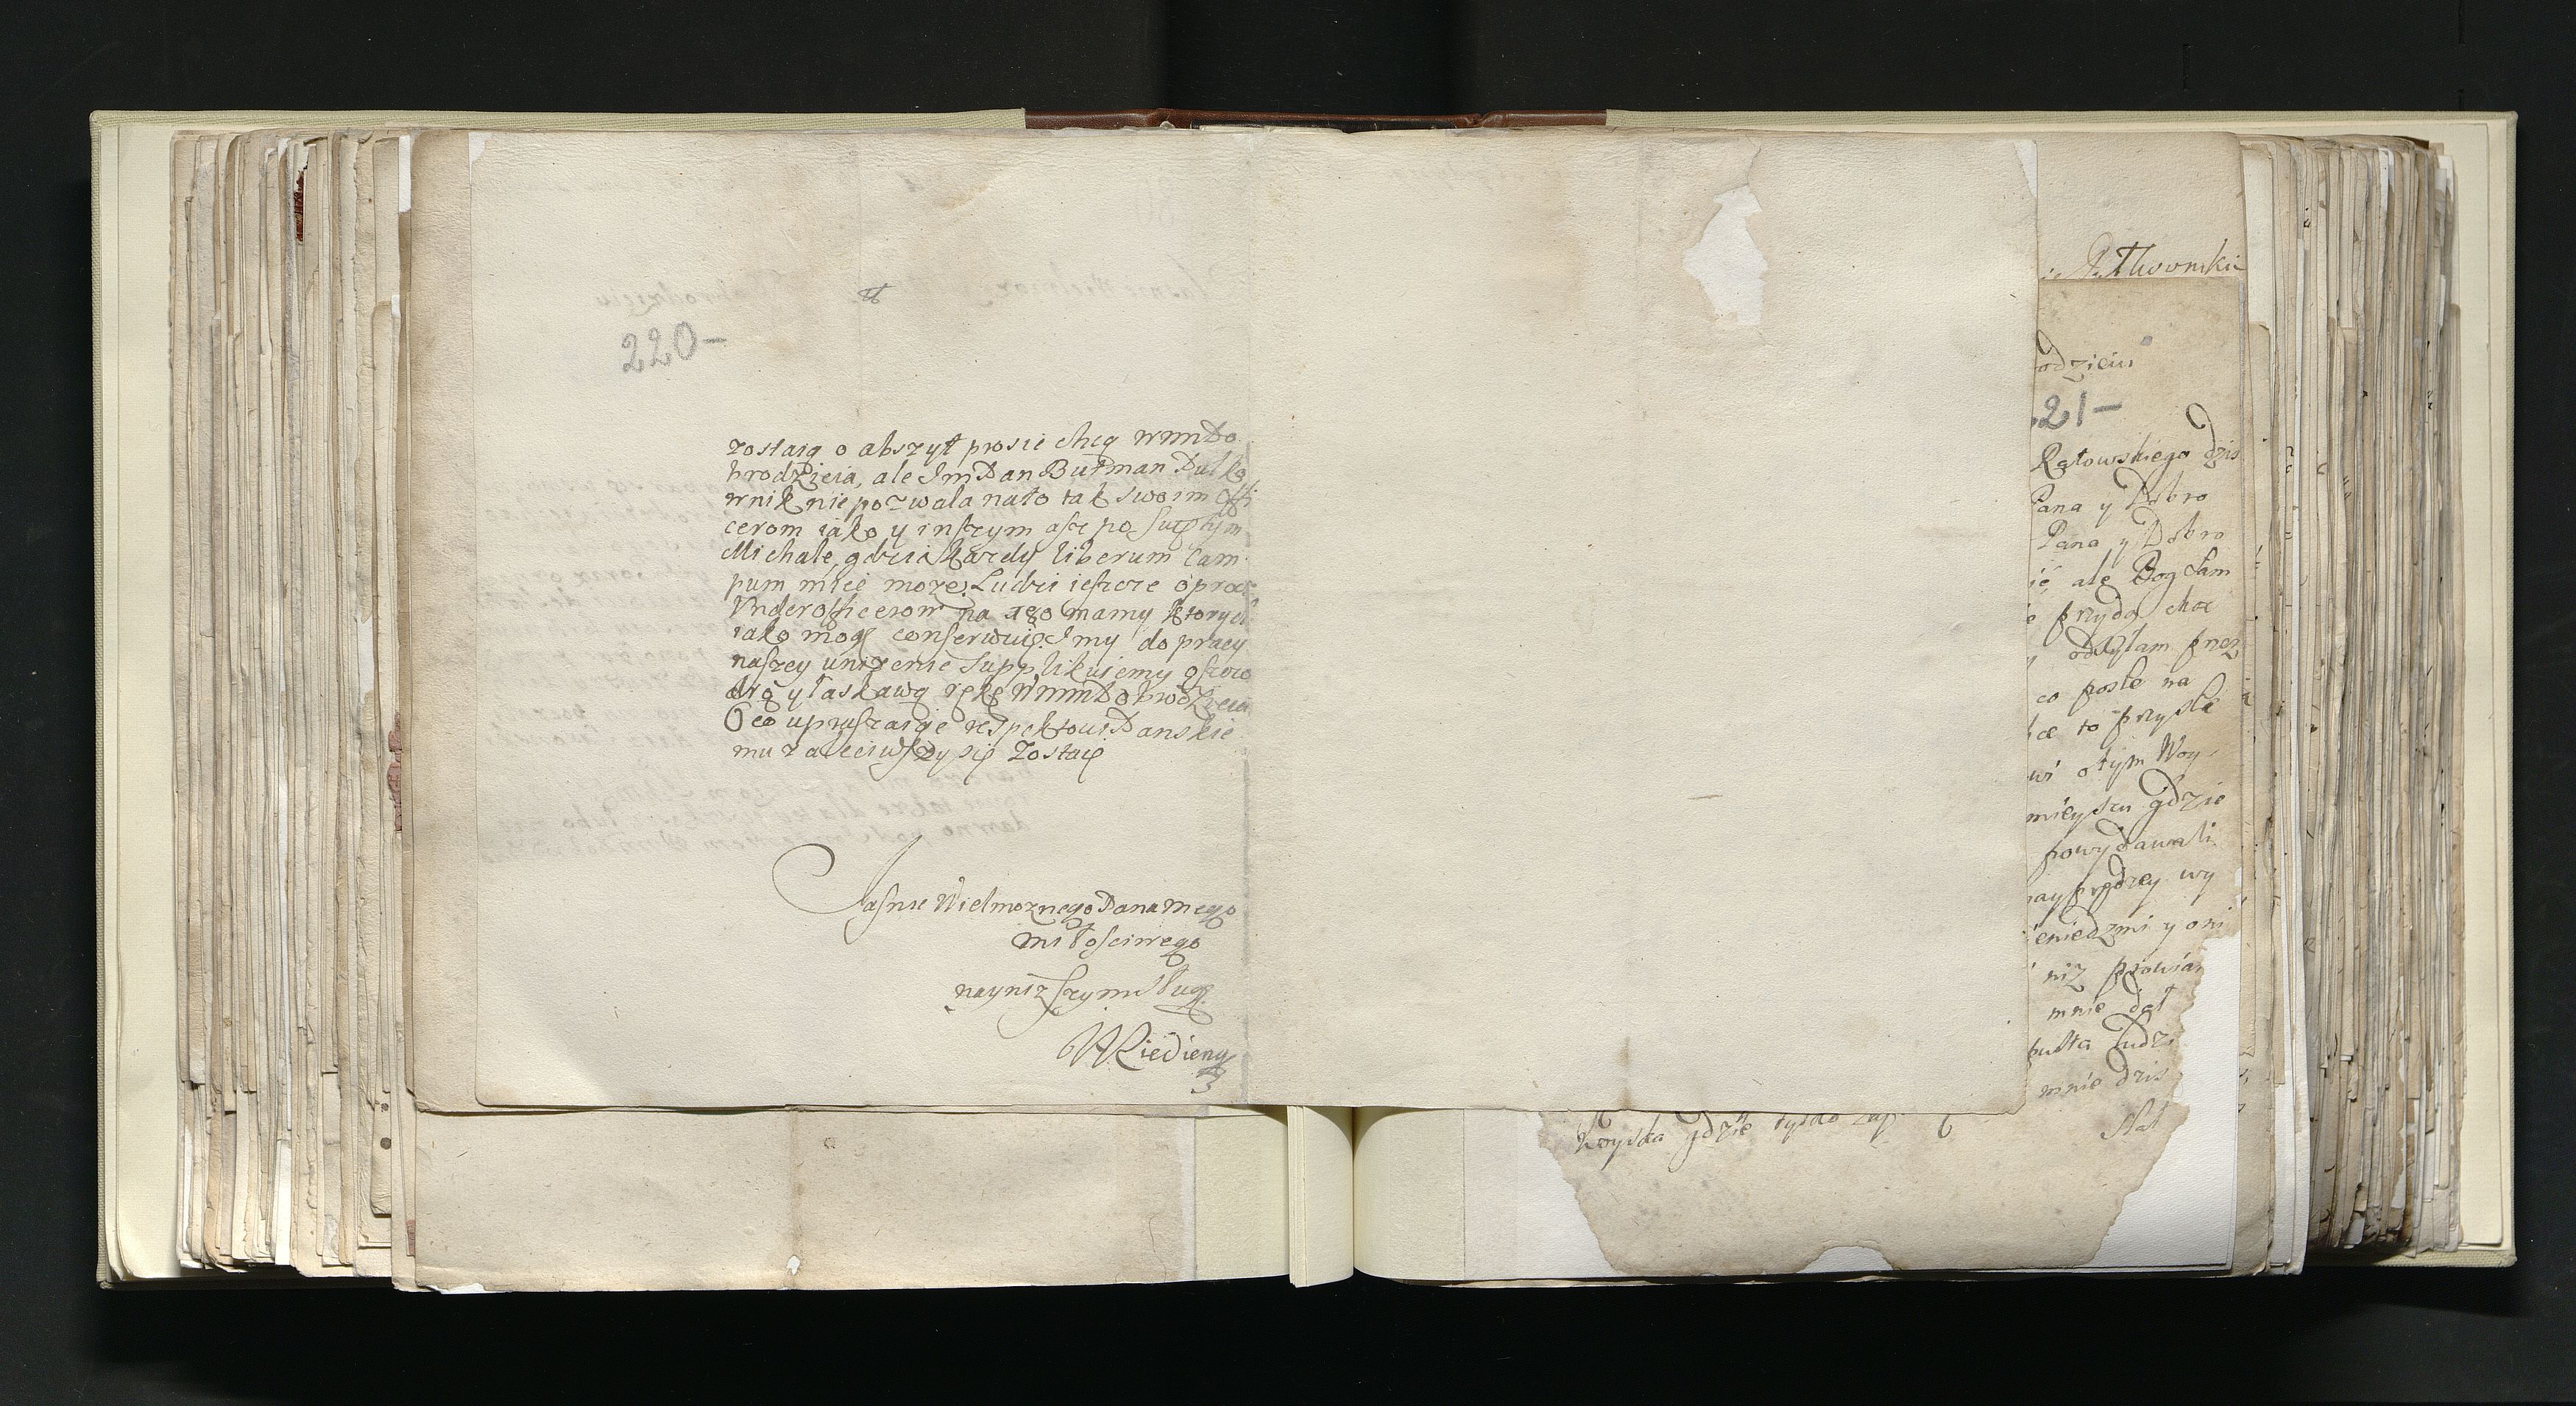 220-
zostaią o abszyt prosić chcą WMMDo
brodzieia, ale Jm Pan Butman Pułko
wnik nie pozwala na to tak swoim offi
cerom iako y inszym asz po Swętym
Michale, gdzie każdy liberum Cam
pum mieć może. Ludzi ieszcze oprocz
Vnderofficerow na ego mamy ktorych
iako mogę conserwuię. I my do pracy
naszey uniżenie Supplikuiemy o szczo
drą y łaskawą rękę WMMDobrodzieia
O co upraszaiąc respektowi Panskie
mu zaleciwszy się Zostaię
Jasnie Wielmożnego Pana mego
miłosciwego
nayniższym Sługą
Riedieng
Thowmski
odzieiu
21-
Rątowskiego dzis
Pana y Dobro
Pana y Dobro
ale Bog Sam
przyda choc
odesłam przez
co posle na
to przysłe
otym Woy
mieyscu gdzie
powydawali
nayprędzey wy
eniedzmi y oni
niz prowian
mnie dał
pułta ludzi
mnie dzis
Nal
woyska gdzie tysko